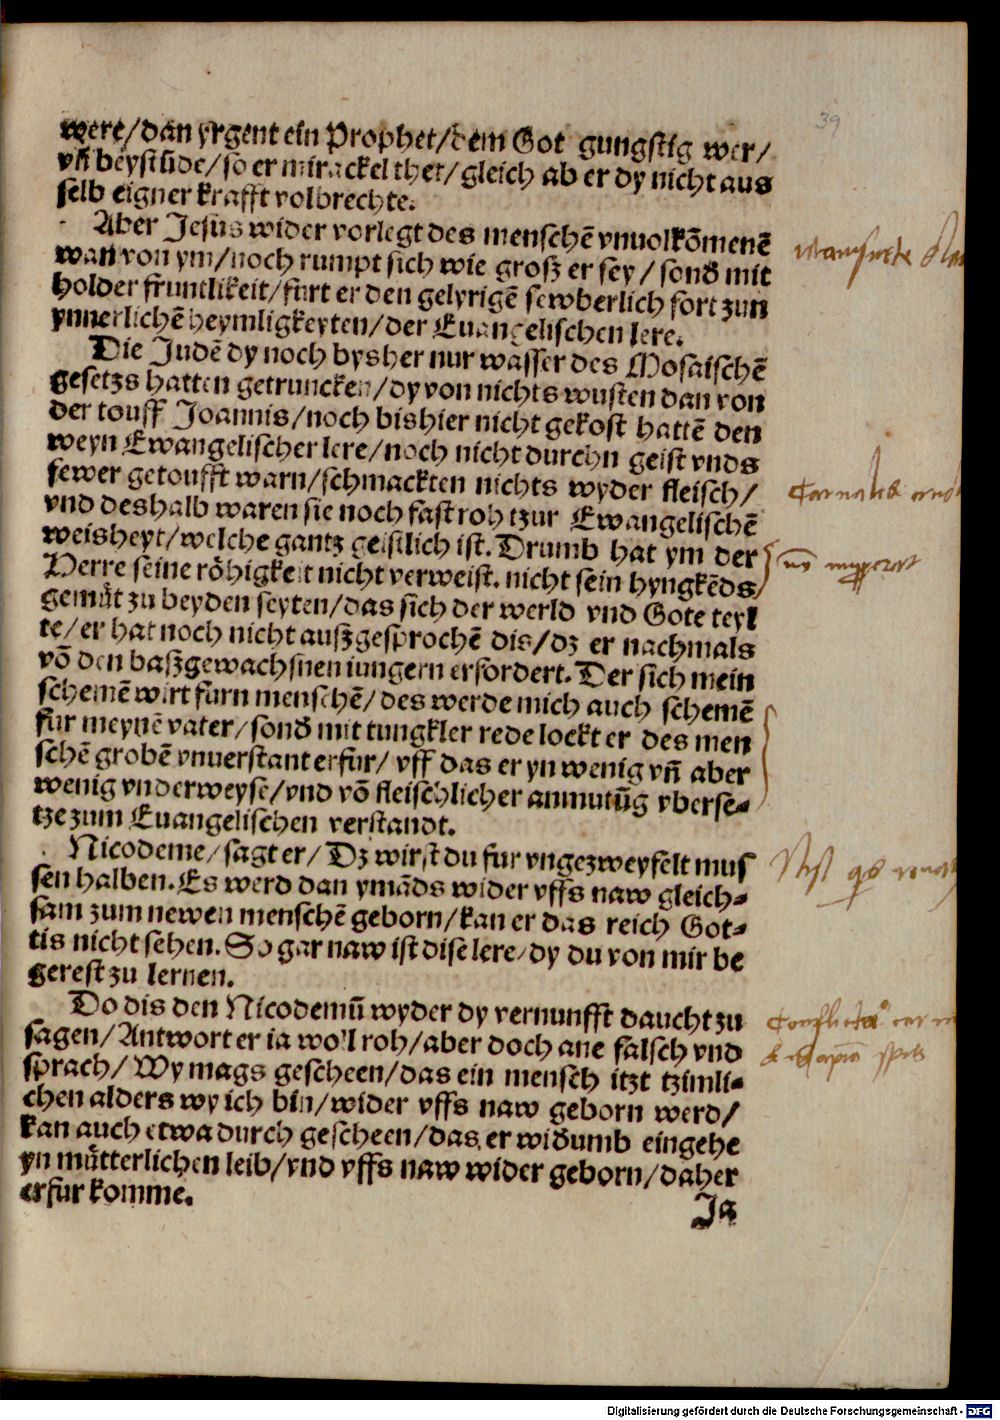 39
were/dan yrgent ein Prophet/dem Got gungstig wer/
vñ beystũde/so er mirackel thet/gleich ab er dy nicht aus
selb eigner krafft volbrechte.
Aber Jesus wider vorlegt des menschē vnuolkōmenē
wan von ym/noch rumpt sich wie groß er sey/ sonđ mit
holder fruntlikeit/furt er den gelyrigē sewberlich fort zun
ynnerlichē heymligkeyten/der Euangelischen lere.
Die Judē dy noch bysher nur wasser des Mosaischē
gesetzs hatten getruncken/dy von nichts wusten dan von
der touff Joannis/noch bishier nicht gekost hattē den
weyn Ewangelischer lere/noch nicht durchn geist vnds
fewer getoufft warn/schmackten nichts wyder fleisch/
vnd deshalb waren sie noch fast roh tzur Ewangelischē
weisheyt/welche gantz geistlich ist. Drumb hat ym der
Herre seine rôhigkeit nicht verweist. nicht sein hyngkēds
gemůt zu beyden seyten/das sich der werld vnd Gote teyl
te/er hat noch nicht außgesprochē dis/dz er nachmals
vō den baßgewachsnen iungern erfordert. Der sich mein
schemē wirt furn menschē/des werde mich auch schemē
fur meynē vater/sonđ mit tungkler rede lockt er des men
schē grobē vnuerstant erfur/ vff das er yn wenig vñ aber
wenig vnderweyse/vnd vō fleischlicher anmutũg vberse⸗
tze zum Euangelischen verstandt.
Nicodeme/sagt er/Dz wirst du fur vngezweyfelt mus
sen halben. Es werd dan ymāds wider vffs naw gleich⸗
sam zum newen menschē geborn/kan er das reich Got⸗
tis nicht sehen. So gar naw ist dise lere/dy du von mir be
gerest zu lernen.
Do dis den Nicodemũ wyder dy vernunfft daucht zu
sagen/Antwort er ia wo'l roh/aber doch ane falsch vnd
sprach/ Wy mags gescheen/das ein mensch itzt tzimli⸗
chen alders wy ich bin/wider vffs naw geborn werd/
kan auch etwa durch gescheen/das er wiđumb eingehe
yn můtterlichen leib/vnd vffs naw wider geborn/daher
erfur komme.
Ja
Digitalisierung gefördert durch die Deutsche Forschungsgemeinschaft - DFG